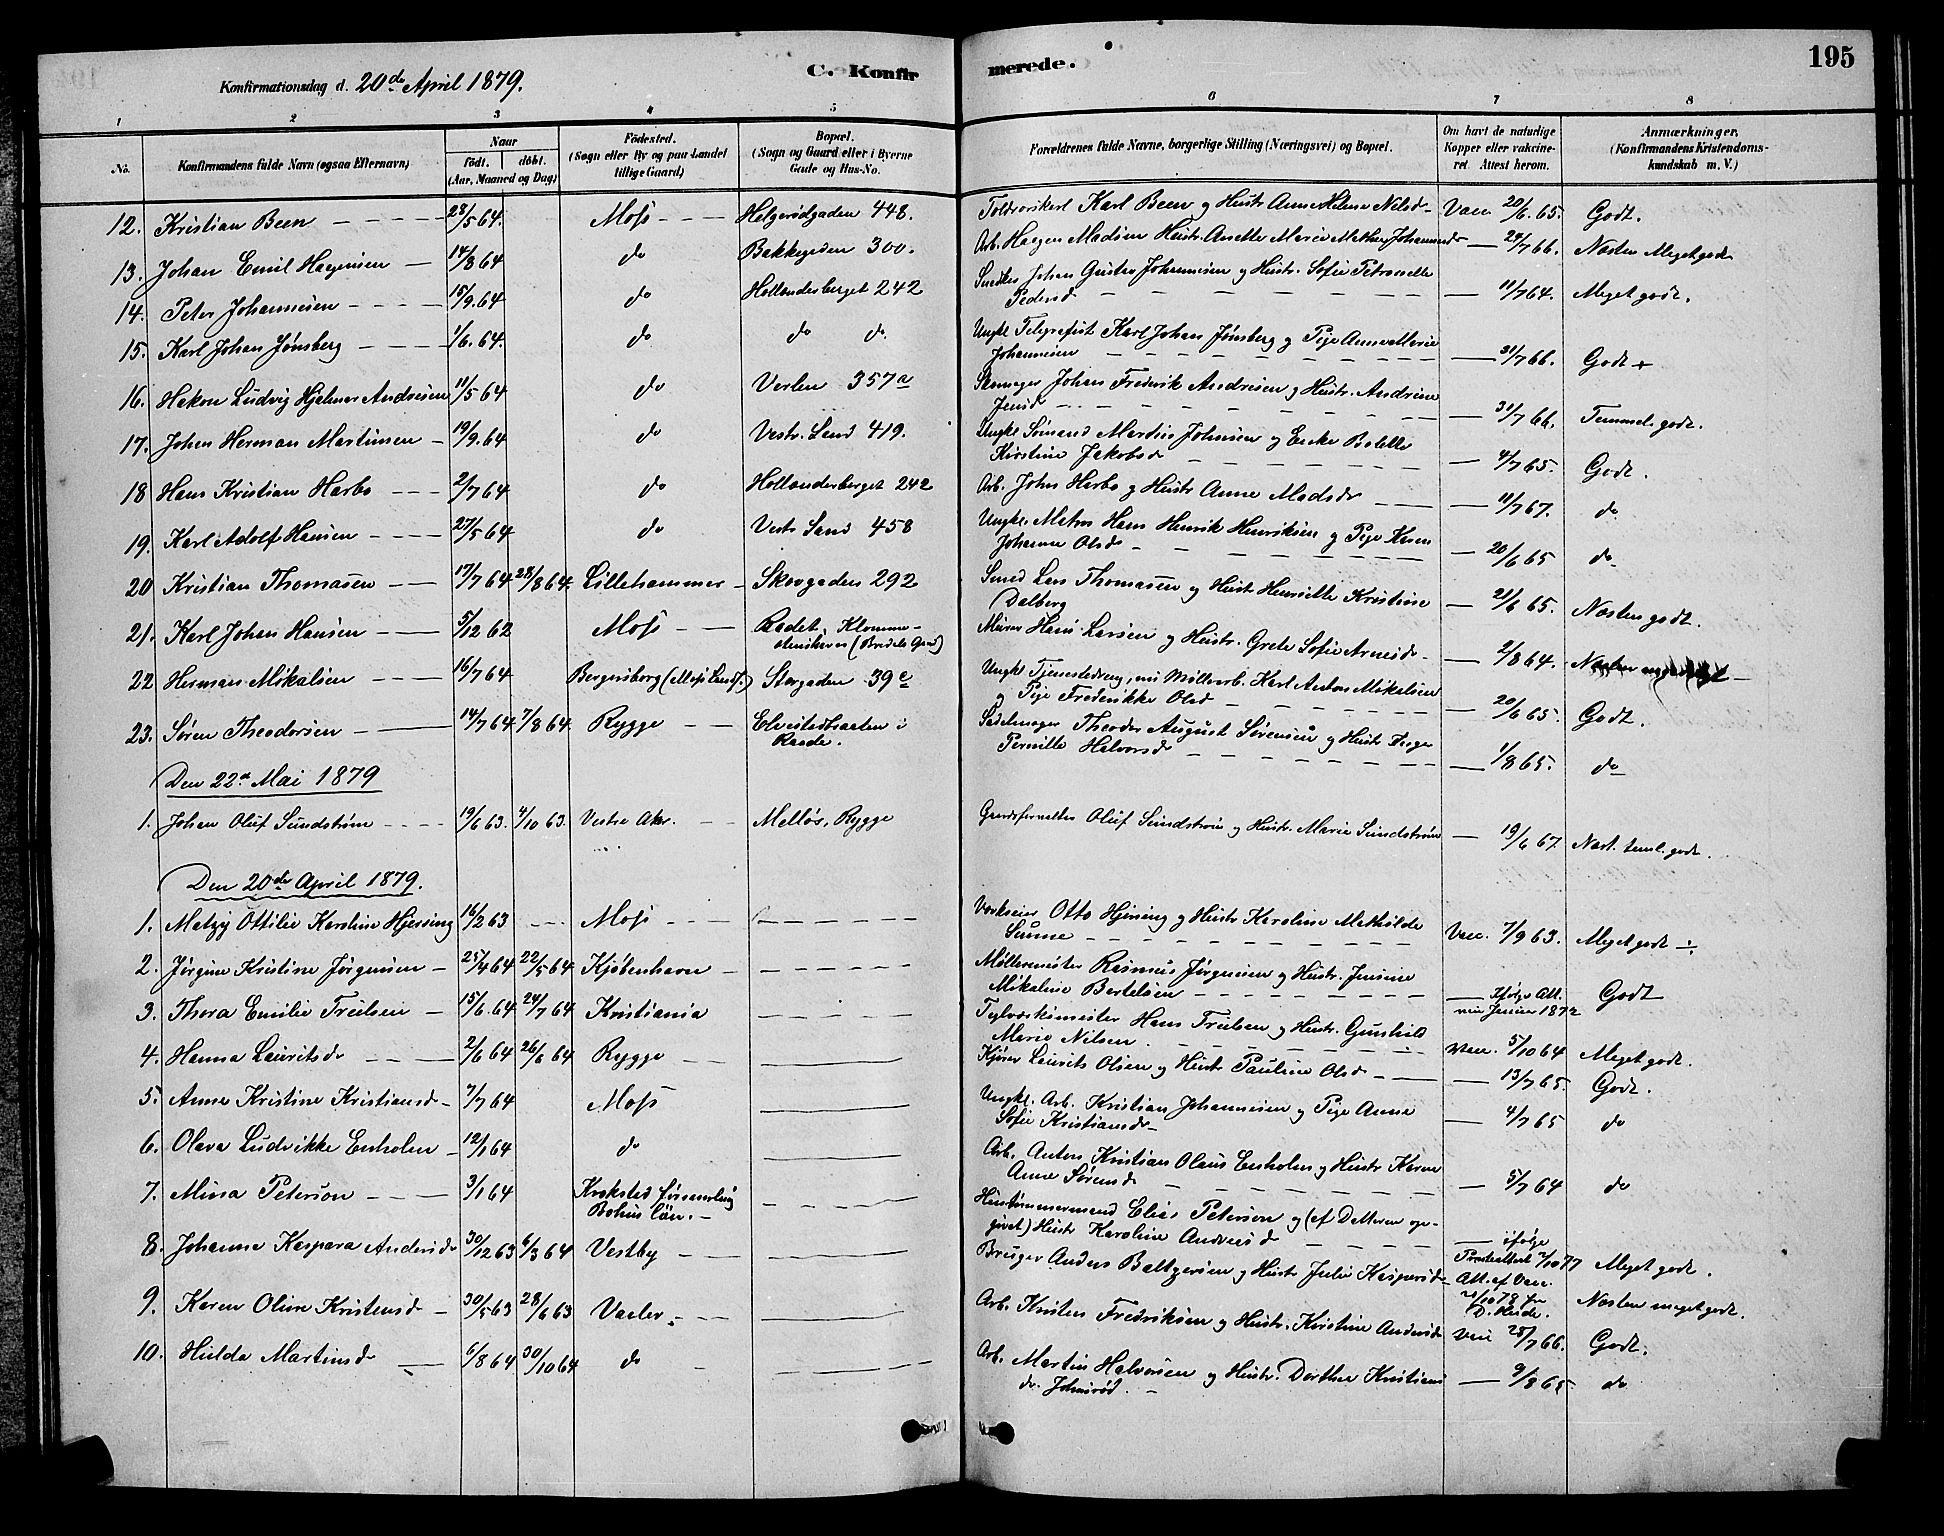 C. Konfirmerede.
195
Konfirmationsdag d. 20de April 1879.
1 2 3 4 5 6 7 8
No.
Konfirmandens fulde Navn (ogsaa Efternavn)
Naar
födt. döbt.
(Aar, Maaned og Dag)
Födested.
(Sogn eller By og paa Landet
tillige Gaard)
Bopæl.
(Sogn og Gaard eller i Byerne
Gade og Hus-No.
Forældrenes fulde Navne, borgerlige Stilling (Næringsvei) og Bopæl.
Om havt de naturlige
Kopper eller vakcine-
ret. Attest herom.
Anmærkninger.
(Konfirmandens Kristendoms-
kundskab m. V.)
12. Kristian Been 23/5 64. Moss Helgerødgaden 448. Karl Been og Hustr. Anne Helene Nilsd. Vacc. 20/6. 65. Godt.
13. Johan Emil Hagensen 14/8 64 do Bakkegaden 300. Arb. Hagen Madsen Hustr. Anette Marie 24/7 66. Næsten Meget godt
14. Peter Johannesen 15/9. 64 do Hollenderberget 242 Snedker Johan Gustav Johannesen og Hustr. Sofie Petronelle
Pedersd 11/7 64. Meget godt.
15. Karl Johan Jønsberg 1/6. 64. do do do. Ungkl. Telegrafist Karl Johan Jønsberg og Pige Anne Marie
Johannesen 31/7 66. Godt +
16. Hakon Ludvig Hjalmar Andresen 11/5 64 do Verlen 357a Johan Frederik Andresen og Hustr. Andrine
Jensd 31/7 66. Temmel. godt.
17. Johan Herman Martinsen 19/9. 64 do Vestr. Sand 419. Ungkl. Sømand Martin Johnsen og Enke Bolette
Kirstine Jakobsd 4/7 65. Godt.
18 Hans Kristian Harbo 2/7 64 do Hollenderberget 242 Arb. Johan Harbo og Hustr. Anne Madsd 11/7 67. do
19. Karl Adolf Hansen 27/5 64 do Vestr. Sand 458 Ungkl. Matros Hans Henrik Henriksen og Pige Karen
Johanne Olsd. 20/6 65 do
20 Kristian Thomasen 17/7 64 28/8 64. Lillehammer Skovgaden 292 Smed Lars Thomasen og Hustr. Henriette Kristine
Dalberg 21/6 65. Næsten godt.
21. Karl Johan Hansen 5/12 62 Moss Murer Hans Larsen og Hustr. Grete Sofie Arnesd. 2/8 64.
22 Herman Mikalsen 16/7 64 Bergersborg (Moss Lands.) Storgaden 39c Ungkl. Tjenestedreng, nu Møllearb. Karl Anton Mikalsen
og Pige Frederikke Olsd 20/6 65. Godt.
23. Søren Theodorsen 14/7 64 7/8 64. Rygge Elvestadbraaten i
Raade. Sadelmager Theodor August Sørensen og Hustr.
Pernille Halvorsd. 1/8 65. do
Den 22de Mai 1879
1. Johan Oluf Sundstrøm 19/6 63. 4/10 63. Vestre Aker. Melløs, Rygge Oluf Sundstrøm og Hustr. Marie Sundstrøm 19/6 67. Næst. teml. godt.
Den 20de April 1879.
1. Metzy Ottilie Karoline Hjersing 16/2 63 Moss Værkseier Otto Hjersing og Hustr. Karoline Mathilde
Vacc. 7/9 63. Meget godt ÷
2. Jørgine Kristine Jørgensen 25/4 64 22/5 64 Kjøbenhavn Møllemester Rasmus Jørgensen og Hustr. Jensine
Mikaline Bertelsen Ifølge Att. Januar 1872 Godt
3. Thora Emilie Treilsen 15/6. 64 24/7 64 Kristiania Hans Treilsen og Hustr. Gunhild
Marie Nilsen. Vacc. 5/10 64 Meget godt.
4. Hanna Lauritsd. 2/6 64 26/6 64 Rygge Kjører Laurits Olsen og Hustr. Pauline Olsd 13/7 65. Godt.
5. Anne Kristine Kristiansd. 7/7 64 Moss Ungkl. Arb. Kristian Johannesen og Pige Anne
Sofie Kristiansd. 4/7 65 do
6. Olava Ludvikke Enholm 12/1 64 do Arb. Anton Kristian Olaus Enholm og Hustr. Karen
Anne Sørensd 5/7 64 do
7. Mina Peterson 3/1 64 Krokstad församling
Bohus län. Hustømmermand Elias Peterson og (af Datteren op-
givet) Hustr. Karoline Andreasd ifølge
8. Johanne Kaspara Andersd. 30/12 63 6/3 64 Vestby Bruger Anders Baltzersen og Hustr. Julie Kaspersd. Meget godt.
9. Karen Oline Kristensd 30/5 63 28/6 63 Vaaler. Arb. Kristen Fredriksen og Hustr. Kirstine Andersd Att. af Vacc. Næsten meget godt.
10. Hulda Martinsd. 6/8 64 30/10 64 do Arb. Martin Halvorsen og Hustr. Dorthea Kristians
d. Vacc. 25/7 66. Godt.
9/8 65 do